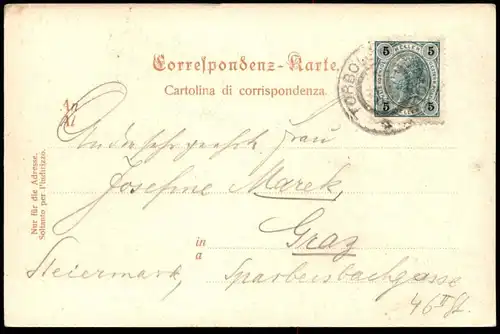 Correspondenz-Karte.
Cartolina di corrispondenza.
TORBO
5 HELLER 5
5 5
An
Ai
Frau
Josefine Marek,
in Graz
a
Steiermark, Sparbersbachgasse
46 II St.
Nur für die Adresse.
Soltanto per l'indirizzo.